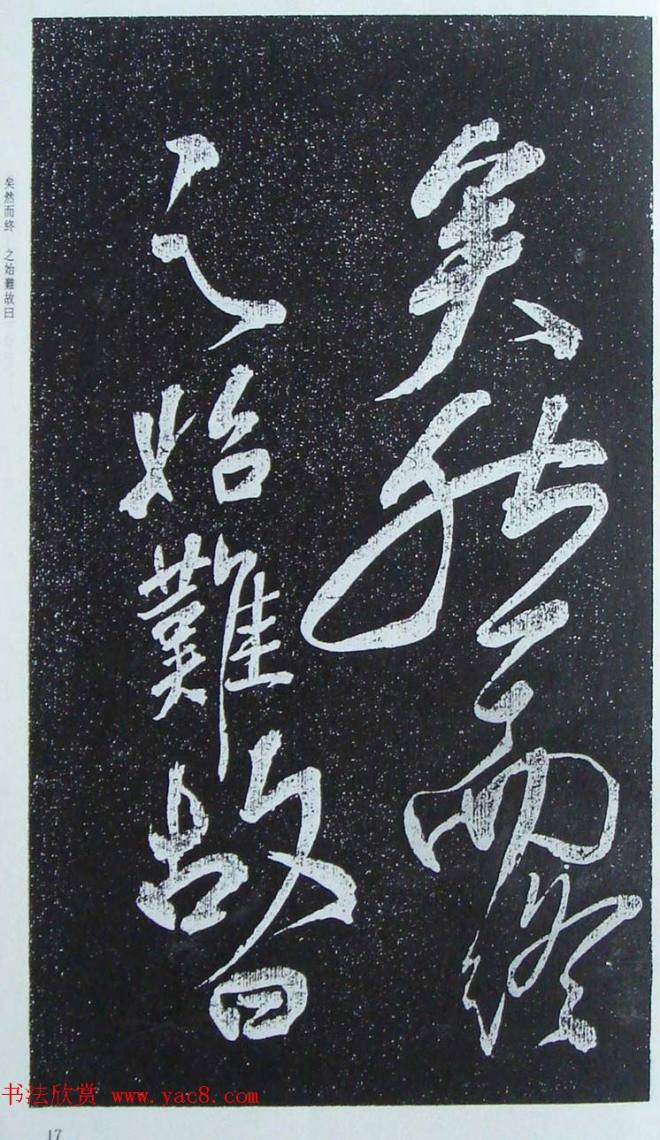 矣然而終
之始難故曰
矣然而终 之始難故曰
书法欣赏 www.yac8.com
17